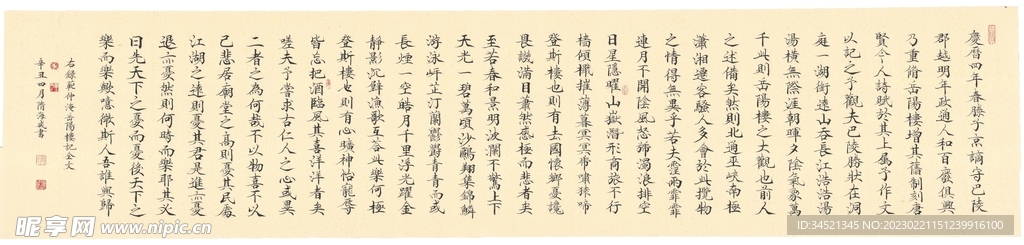 慶曆四年春滕子京謫守巴陵
郡越明年政通人和百廢俱興
乃重脩岳陽樓增其舊制刻唐
賢今人詩賦於其上屬予作文
以記之予觀夫巴陵勝狀在洞
庭一湖銜遠山吞長江浩浩湯
湯橫無際涯朝暉夕陰氣象萬
千此則岳陽樓之大觀也前人
之述備矣然則北通巫峽南極
瀟湘遷客騷人多會於此攬物
之情得無異乎若夫霪雨霏霏
連月不開陰風怒號濁浪排空
日星隱曜山嶽潛形商旅不行
檣傾楫摧薄暮冥冥虎嘯猿啼
登斯樓也則有去國懷鄉憂讒
畏譏滿目蕭然感極而悲者矣
至若春和景明波瀾不驚上下
天光一碧萬頃沙鷗翔集錦鱗
游泳岸芷汀蘭鬱鬱青青而或
長煙一空皓月千里浮光躍金
靜影沉璧漁歌互答此樂何極
登斯樓也則有心曠神怡寵辱
皆忘把酒臨風其喜洋洋者矣
嗟夫予嘗求古仁人之心或異
二者之為何哉不以物喜不以
己悲居廟堂之高則憂其民處
江湖之遠則憂其君是進亦憂
退亦憂然則何時而樂耶其必
曰先天下之憂而憂後天下之
樂而樂歟噫微斯人吾誰與歸
右錄範仲淹岳陽樓記全文
辛丑四月隋海書
昵享网 www.nipic.cn
ID:34521345 NO:20230221151239916100